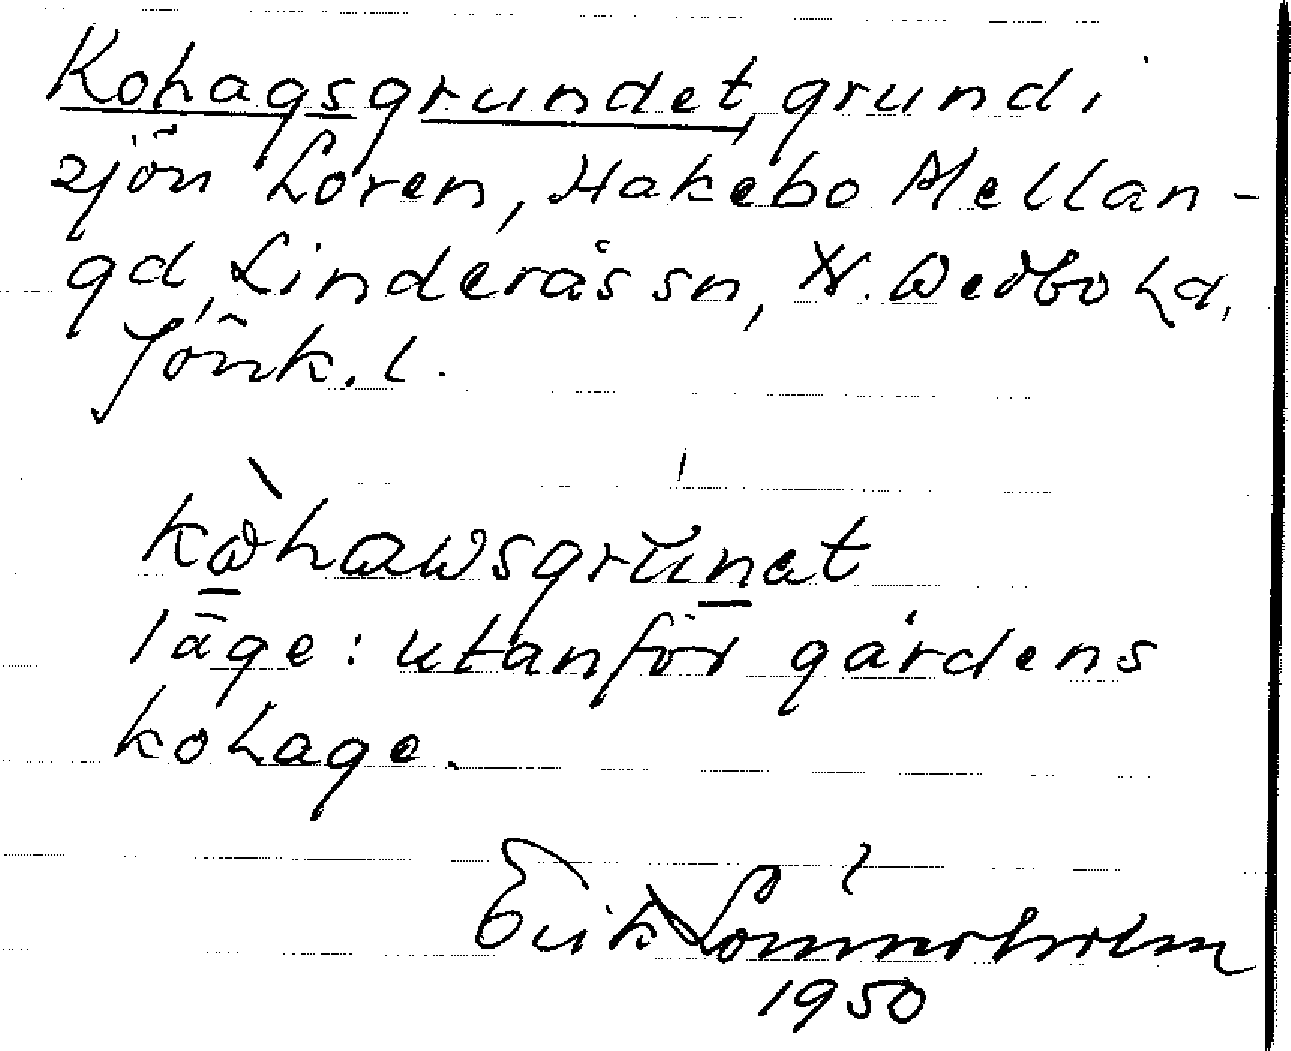 Kohagsgrundet, grund i
sjön Loren, Hakebo Mellan-
gd, Linderås sn, N. Vedbo hd,
Jönk. l.
kɷ̀hɑɷsgrúnət
läge: utanför gårdens
kohage.
Erik
1950